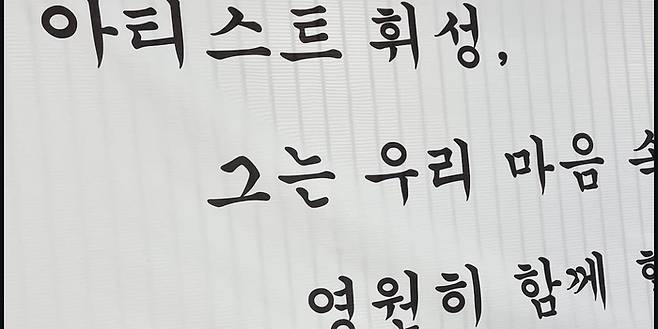 아티스트 휘성,
그는 우리 마음
영원히 함께